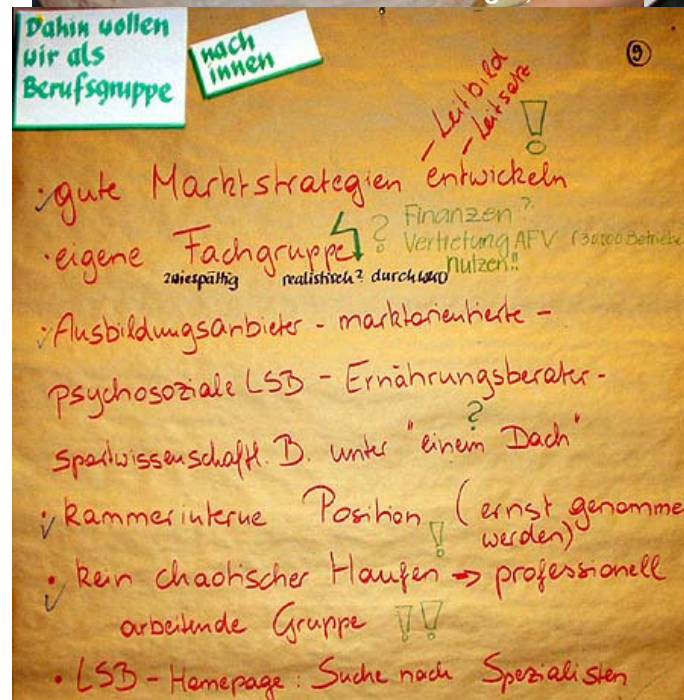 Dahin wollen
wir als
Berufsgruppe
nach
innen
9
- Leitbild
- Leitsatz
!
· gute Marktstrategien entwickeln
· eigene Fachgruppe
? Finanzen?
Vertretung AFV (30000 Betriebe
nutzen!!
zwiespältig realistisch? durch WKO
· Ausbildungsanbieter - marktorientierte -
psychosoziale LSB - Ernährungsberater -
?
sportwissenschaftl. B. unter "einem Dach"
· kammerinterne Position ! (ernst genomme
werden)
· kein chaotischer Haufen → professionell
arbeitende Gruppe !!
· LSB - Homepage : Suche nach Spezialisten